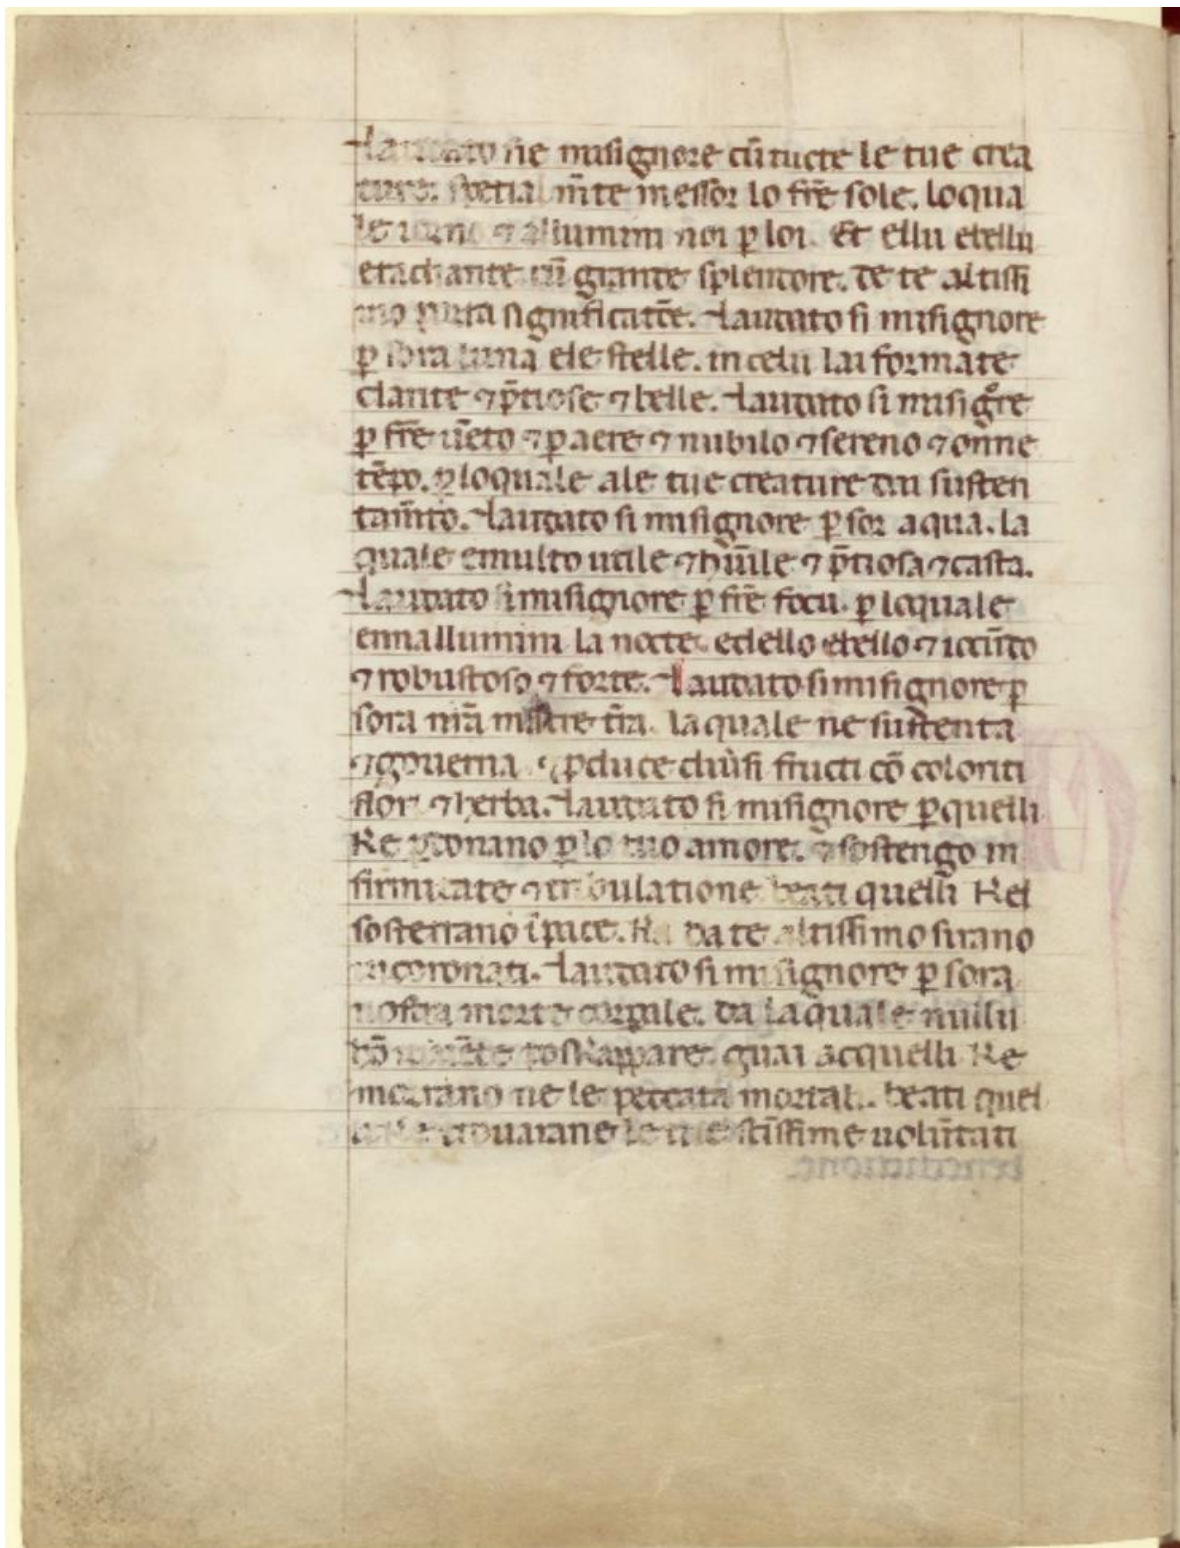 Laudato sie misignore cū tucte le tue crea
ture. spetialm̄te messor lo frē sole. loqua
le iorno ⁊ allumini noi ꝑ loi. Et ellu ebellu
eradiante cū grande splendore. de te altissi
mo porta significatōe. Laudato si misignore
ꝑ sora luna ele stelle. in celu lai formate
clarite ⁊ p̄tiose ⁊ belle. Laudato si misigr̄e
ꝑ frē uēto ⁊ ꝑ aere ⁊ nubilo ⁊ sereno ⁊ onne
tēpo. ꝑ loquale ale tue creature dai susten
tam̄to. Laudato si misignore ꝑ sor aqua. la
quale emulto utile ⁊ hūile ⁊ p̄tiosa ⁊ casta.
Laudato si misignore ꝑ frē focu. ꝑ loquale
ennallumini la nocte. edello ebello ⁊ iocūdo
⁊ robustoso ⁊ forte. Laudato si misignore ꝑ
sora nr̄a matre tr̄a. la quale ne sustenta
⁊ gouerna. ⁊ ꝓduce diu̓si fructi cō coloriti
flori ⁊ herba. Laudato si misignore ꝑ quelli
ke ꝑdonano ꝑ lo tuo amore. ⁊ sostengo in
firmitate ⁊ tribulatione beati quelli kel
sosterrano ī pace. ka da te altissimo sirano
incoronati. Laudato si misignore ꝑ sora
nostra morte corꝑale. da la quale nullu
hō uiuēte poskappare. guai acquelli ke
morrano ne le peccata mortali. beati quel
li ke trouarane le tue sc̄issime uolūtati